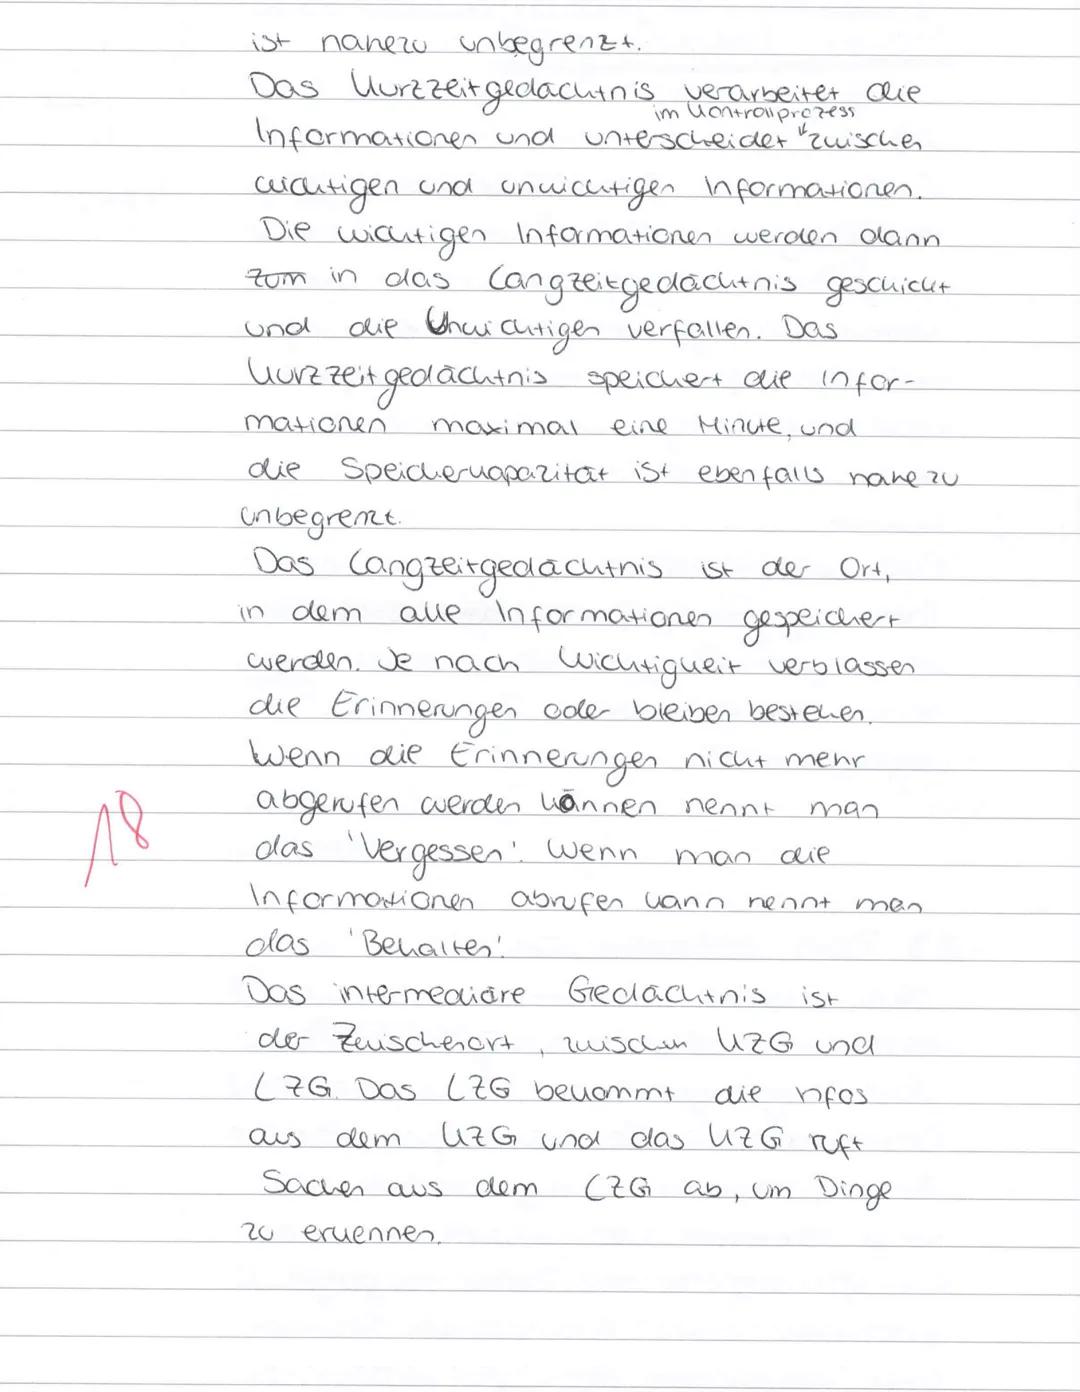 ist nahezu unbegrenzt.
Das Kurzzeitgedächtnis verarbeitet die
im Kontrollprozess
Informationen und unterscheidet zwischen
wichtigen und unwichtigen Informationen.
Die wichtigen Informationen werden dann
zum in das Langzeitgedächtnis geschickt
und die Unwichtigen verfallen. Das
Kurzzeitgedächtnis speichert die Infor-
mationen maximal eine Minute, und
die Speicherkapazität ist ebenfalls nahezu
unbegrenzt.
Das Langzeitgedächtnis ist der Ort,
in dem alle Informationen gespeichert
werden. Je nach Wichtigkeit verblassen
die Erinnerungen oder bleiben bestehen.
Wenn die Erinnerungen nicht mehr
abgerufen werden können nennt man
18
das 'Vergessen'. Wenn man die
Informationen abrufen kann nennt man
das 'Behalten'.
Das intermediäre Gedächtnis ist
der Zwischenort, zwischen KZG und
LZG. Das LZG bekommt die nfos
aus dem KZG und das KZG ruft
Sachen aus dem LZG ab, um Dinge
zu erkennen.